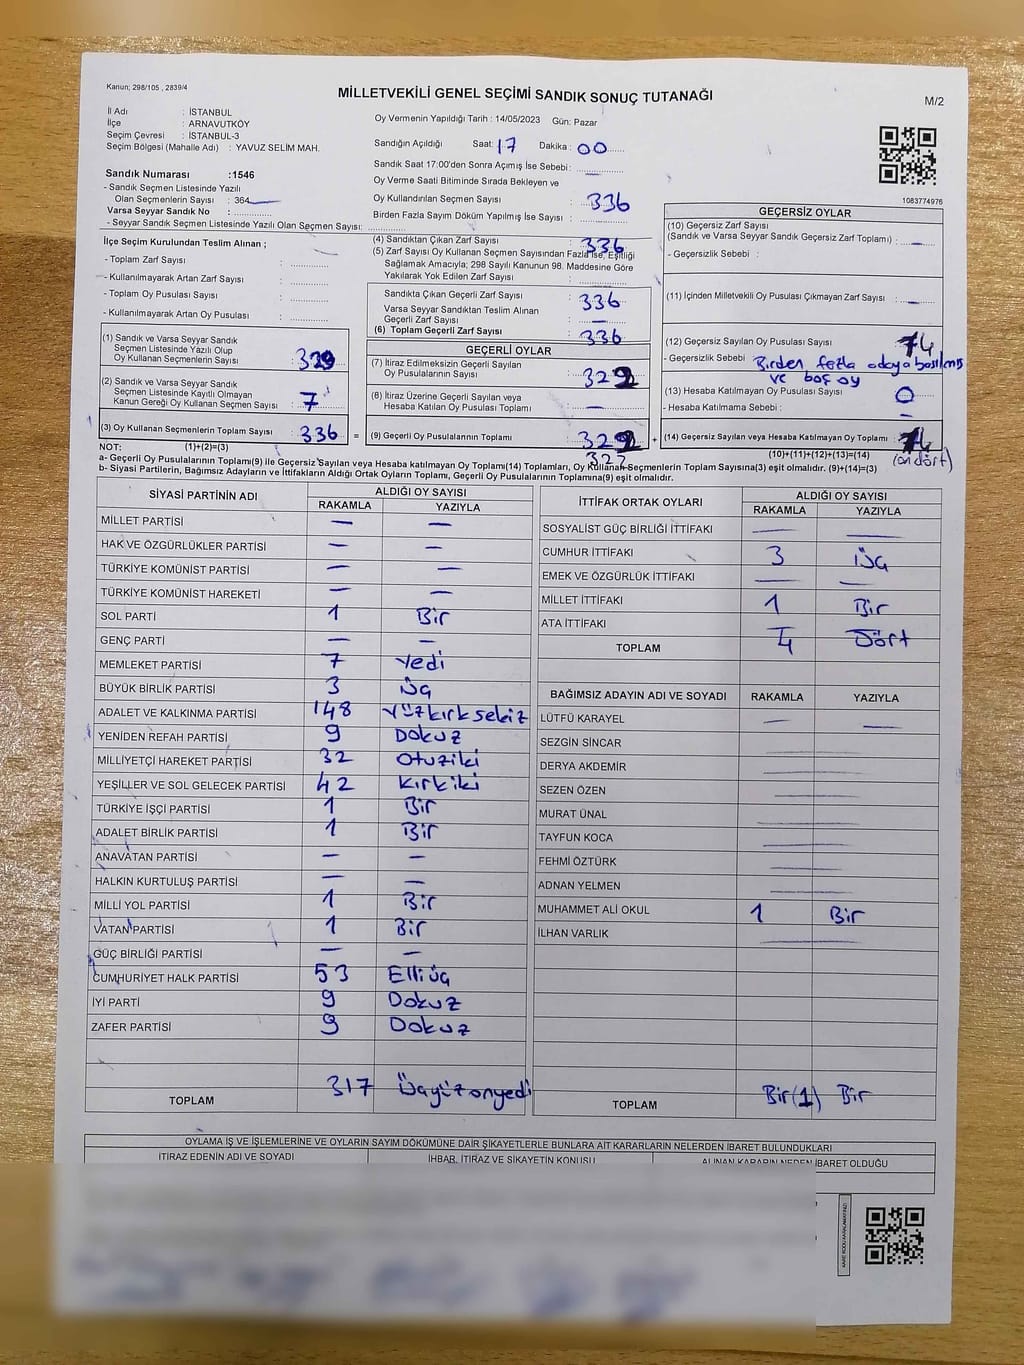 Kanun; 298/105 , 2839/4
MİLLETVEKİLİ GENEL SEÇİMİ SANDIK SONUÇ TUTANAĞI
M/2
İl Adı : İSTANBUL
İlçe : ARNAVUTKÖY
Seçim Çevresi : İSTANBUL-3
Seçim Bölgesi (Mahalle Adı) : YAVUZ SELİM MAH.
Sandık Numarası :1546
- Sandık Seçmen Listesinde Yazılı
Olan Seçmenlerin Sayısı : 364
Varsa Seyyar Sandık No :
- Seyyar Sandık Seçmen Listesinde Yazılı Olan Seçmen Sayısı:
Oy Vermenin Yapıldığı Tarih : 14/05/2023 Gün: Pazar
Sandığın Açıldığı Saat: 17 Dakika : 00
Sandık Saat 17:00'den Sonra Açımış İse Sebebi :
Oy Verme Saati Bitiminde Sırada Bekleyen ve
Oy Kullandırılan Seçmen Sayısı : 336
Birden Fazla Sayım Döküm Yapılmış İse Sayısı :
1083774976
İlçe Seçim Kurulundan Teslim Alınan ;
- Toplam Zarf Sayısı :
- Kullanılmayarak Artan Zarf Sayısı :
- Toplam Oy Pusulası Sayısı :
- Kullanılmayarak Artan Oy Pusulası :
(1) Sandık ve Varsa Seyyar Sandık
Seçmen Listesinde Yazılı Olup
Oy Kullanan Seçmenlerin Sayısı : 329
(2) Sandık ve Varsa Seyyar Sandık
Seçmen Listesinde Kayıtlı Olmayan
Kanun Gereği Oy Kullanan Seçmen Sayısı : 7
(3) Oy Kullanan Seçmenlerin Toplam Sayısı : 336 =
(4) Sandıktan Çıkan Zarf Sayısı : 336
(5) Zarf Sayısı Oy Kullanan Seçmen Sayısından Fazla İse, Eşitliği
Sağlamak Amacıyla; 298 Sayılı Kanunun 98. Maddesine Göre
Yakılarak Yok Edilen Zarf Sayısı :
Sandıkta Çıkan Geçerli Zarf Sayısı : 336
Varsa Seyyar Sandıktan Teslim Alınan
Geçerli Zarf Sayısı : —
(6) Toplam Geçerli Zarf Sayısı : 336
GEÇERLİ OYLAR
(7) İtiraz Edilmeksizin Geçerli Sayılan
Oy Pusulalarının Sayısı : 322
(8) İtiraz Üzerine Geçerli Sayılan veya
Hesaba Katılan Oy Pusulası Toplamı : —
(9) Geçerli Oy Pusulalarının Toplamı : 322 +
322
GEÇERSİZ OYLAR
(10) Geçersiz Zarf Sayısı
(Sandık ve Varsa Seyyar Sandık Geçersiz Zarf Toplamı) : —
- Geçersizlik Sebebi :
(11) İçinden Milletvekili Oy Pusulası Çıkmayan Zarf Sayısı : —
(12) Geçersiz Sayılan Oy Pusulası Sayısı : 14
- Geçersizlik Sebebi : Birden fazla odaya basılmış
ve boş oy
(13) Hesaba Katılmayan Oy Pusulası Sayısı : 0
- Hesaba Katılmama Sebebi : —
(14) Geçersiz Sayılan veya Hesaba Katılmayan Oy Toplamı : 14
(10)+(11)+(12)+(13)=(14) (on dört)
NOT: (1)+(2)=(3)
a- Geçerli Oy Pusulalarının Toplamı(9) ile Geçersiz Sayılan veya Hesaba katılmayan Oy Toplamı(14) Toplamları, Oy Kullanan Seçmenlerin Toplam Sayısına(3) eşit olmalıdır. (9)+(14)=(3)
b- Siyasi Partilerin, Bağımsız Adayların ve İttifakların Aldığı Ortak Oyların Toplamı, Geçerli Oy Pusulalarının Toplamına(9) eşit olmalıdır.
SİYASİ PARTİNİN ADI ALDIĞI OY SAYISI
RAKAMLA YAZIYLA
MİLLET PARTİSİ — —
HAK VE ÖZGÜRLÜKLER PARTİSİ — —
TÜRKİYE KOMÜNİST PARTİSİ — —
TÜRKİYE KOMÜNİST HAREKETİ — —
SOL PARTİ 1 Bir
GENÇ PARTİ — —
MEMLEKET PARTİSİ 7 Yedi
BÜYÜK BİRLİK PARTİSİ 3 Üç
ADALET VE KALKINMA PARTİSİ 148 Yüzkırksekiz
YENİDEN REFAH PARTİSİ 9 Dokuz
MİLLİYETÇİ HAREKET PARTİSİ 32 Otuziki
YEŞİLLER VE SOL GELECEK PARTİSİ 42 Kırkiki
TÜRKİYE İŞÇİ PARTİSİ 1 Bir
ADALET BİRLİK PARTİSİ 1 Bir
ANAVATAN PARTİSİ — —
HALKIN KURTULUŞ PARTİSİ — —
MİLLİ YOL PARTİSİ 1 Bir
VATAN PARTİSİ 1 Bir
GÜÇ BİRLİĞİ PARTİSİ — —
CUMHURİYET HALK PARTİSİ 53 Elliüç
İYİ PARTİ 9 Dokuz
ZAFER PARTİSİ 9 Dokuz
TOPLAM 317 Üçyüzonyedi
İTTİFAK ORTAK OYLARI ALDIĞI OY SAYISI
RAKAMLA YAZIYLA
SOSYALİST GÜÇ BİRLİĞİ İTTİFAKI — —
CUMHUR İTTİFAKI 3 Üç
EMEK VE ÖZGÜRLÜK İTTİFAKI — —
MİLLET İTTİFAKI 1 Bir
ATA İTTİFAKI — —
TOPLAM 4 Dört
BAĞIMSIZ ADAYIN ADI VE SOYADI RAKAMLA YAZIYLA
LÜTFÜ KARAYEL — —
SEZGİN SİNCAR —
DERYA AKDEMİR —
SEZEN ÖZEN —
MURAT ÜNAL —
TAYFUN KOCA —
FEHMİ ÖZTÜRK —
ADNAN YELMEN —
MUHAMMET ALİ OKUL 1 Bir
İLHAN VARLIK —
TOPLAM Bir(1) Bir
OYLAMA İŞ VE İŞLEMLERİNE VE OYLARIN SAYIM DÖKÜMÜNE DAİR ŞİKAYETLERLE BUNLARA AİT KARARLARIN NELERDEN İBARET BULUNDUKLARI
İTİRAZ EDENİN ADI VE SOYADI İHBAR, İTİRAZ VE ŞİKAYETİN KONUSU ALINAN KARARIN NEDEN İBARET OLDUĞU